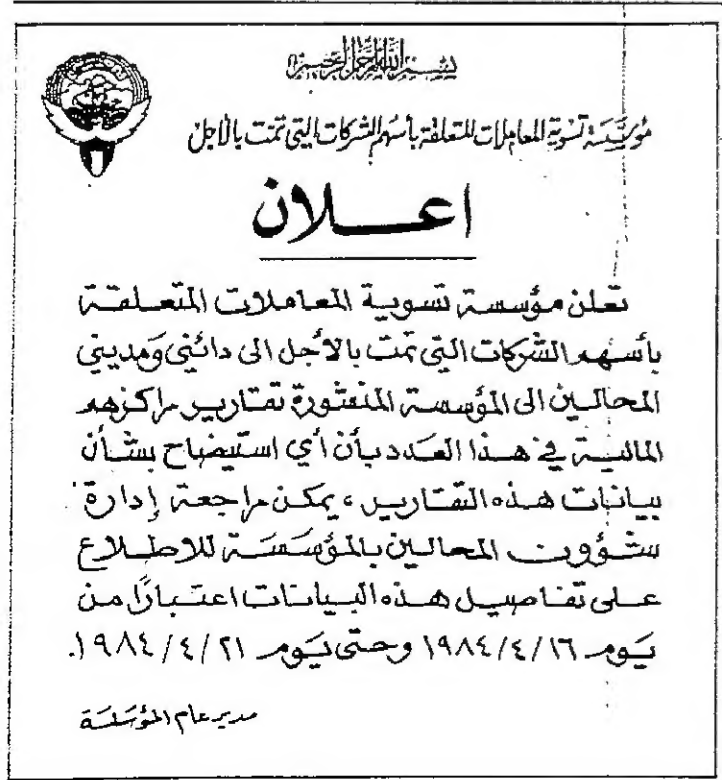 بسم الله الرحمن الرحيم
مؤسسة تسوية المعاملات المتعلقة بأسهم الشركات التي تمت بالأجل
اعــلان
تعلن مؤسسة تسوية المعاملات المتعلقة
بأسهم الشركات التي تمت بالأجل الى دائني ومديني
المحالين الى المؤسسة المنشورة تقارير مراكزهم
المالية في هذا العدد بأن أي استيضاح بشأن
بيانات هذه التقارير ، يمكن مراجعة إدارة
شؤون المحالين بالمؤسسة للاطلاع
على تفاصيل هذه البيانات اعتبارًا من
يوم ١٩٨٤/٤/١٦ وحتى يوم ١٩٨٤/٤/٢١.
مدير عام المؤسسة